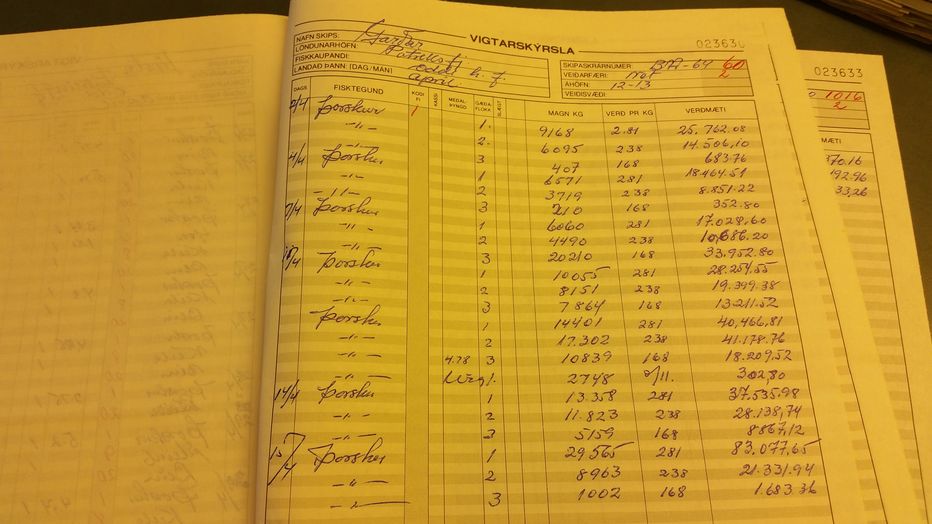 VIGTARSKÝRSLA
023630
NAFN SKIPS: Garðar
LÖNDUNARHÖFN: Patreksfj
FISKKAUPANDI: Oddi h.f.
LANDAÐ ÞANN: (DAG/MÁN) April
SKIPASKRÁRNÚMER: 60
VEIÐARFÆRI: Not 2
ÁHÖFN: 12-13
VEIÐISVÆÐI:
DAGS FISKTEGUND KODI FI KASSI MEDAL-ÞYNGD GÆÐA-FLOKK SLÆGT MAGN KG VERÐ PR KG VERÐMÆTI
2/4 Þorskur 1 1. 9168 2.81 25.762.08
-"- 2. 6095 238 14.506,10
3 407 168 683.76
4/4 Þorskur 1 6571 281 18.464.51
-"- 2 3719 238 8.851.22
-"- 3 210 168 352.80
7/4 Þorskur 1 6060 281 17.028,60
-"- 2 4490 238 10,686.20
-"- 3 20210 168 33,952.80
Þorskur 1 10055 281 28.254.55
-"- 2 8151 238 19.399.38
-"- 3 7864 168 13.211.52
Þorskur 1 14401 281 40,466,81
-"- 2 17.302 238 41.178.76
-"- 3 10839 168 18.209,52
4.78 1. 2748 0/11. 302,80
14/4 Þorskur 1 13.358 281 37.535,98
-"- 2 11.823 238 28.138,74
-"- 3 5159 168 8.667,12
15/4 Þorskur 1 29565 281 83.077,65
-"- 2 8963 238 21.331.94
-"- 3 1002 168 1.683.36
023633
1016
2
MÆTI
370.16
492.96
33,26